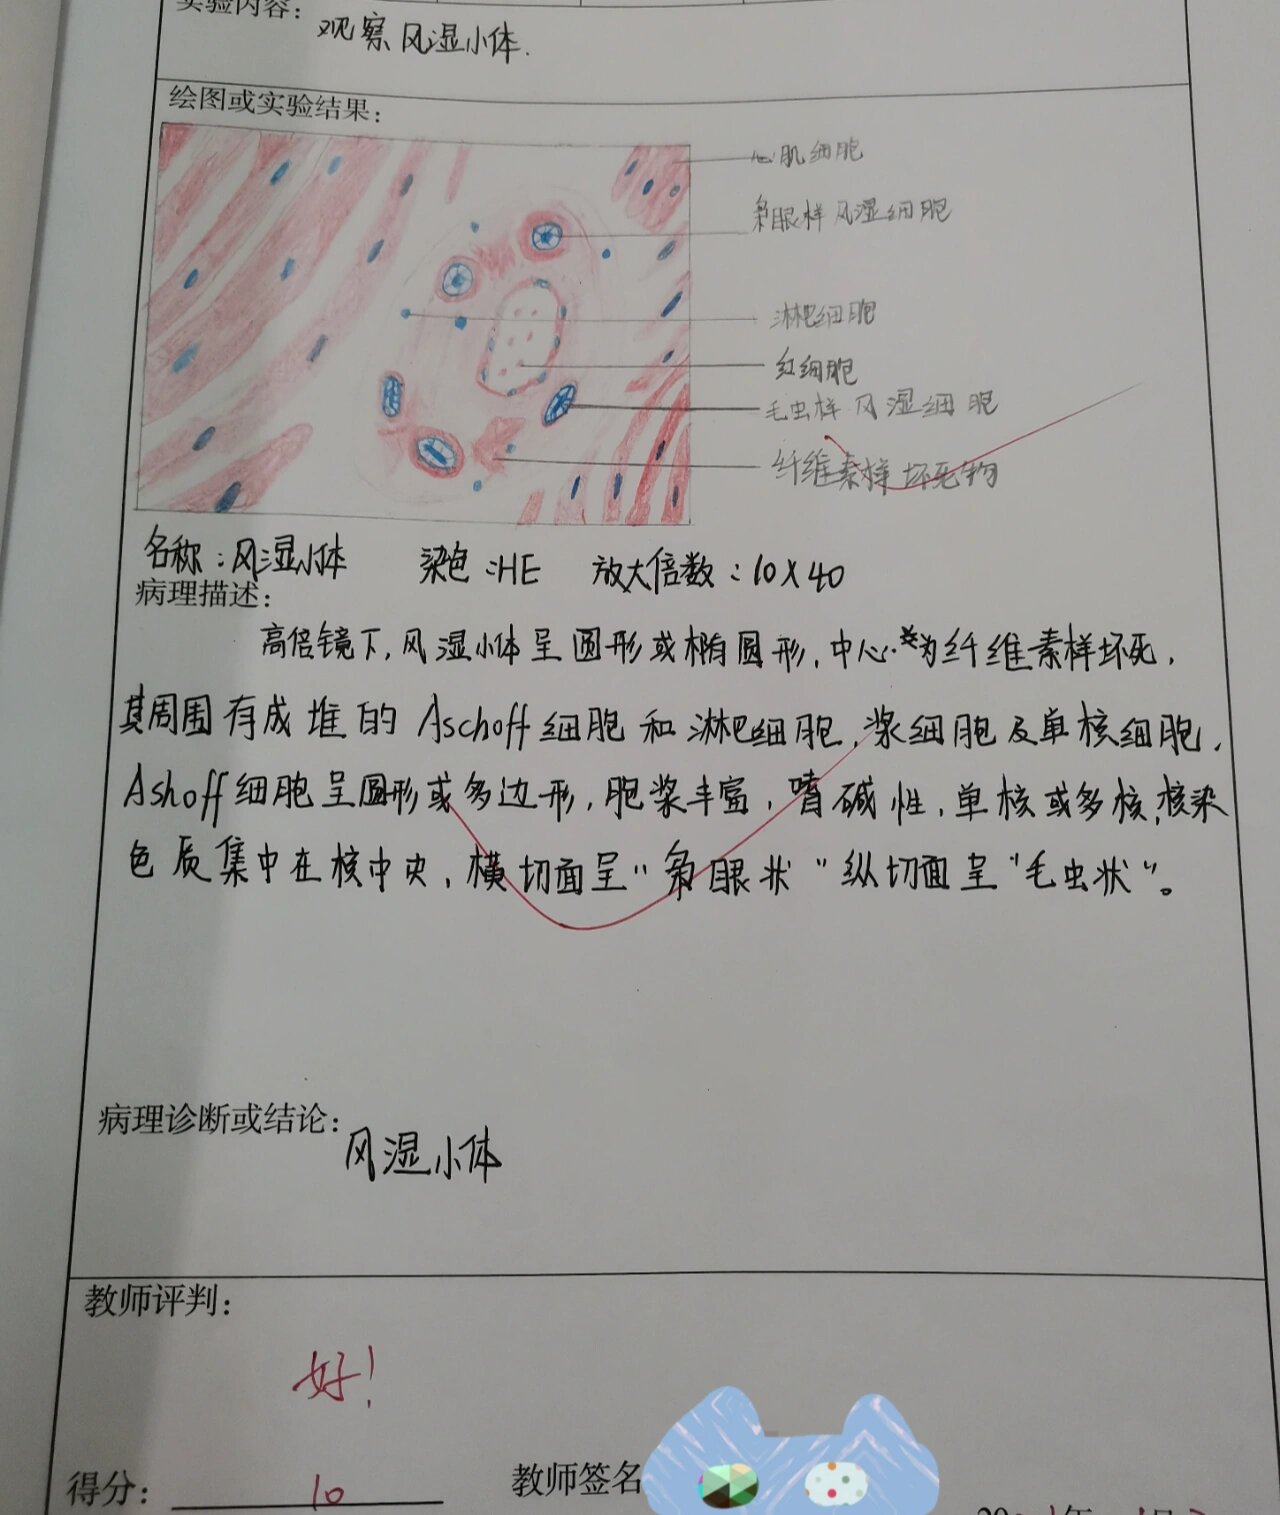 实验内容：观察风湿小体.
绘图或实验结果：
心肌细胞
枭眼样风湿细胞
淋巴细胞
红细胞
毛虫样风湿细胞
纤维素样坏死物
名称：风湿小体 染色：HE 放大倍数：10X40
病理描述：
高倍镜下,风湿小体呈圆形或椭圆形,中心为纤维素样坏死,
其周围有成堆的 Aschoff 细胞和淋巴细胞,浆细胞及单核细胞,
Ashoff 细胞呈圆形或多边形,胞浆丰富,嗜碱性,单核或多核,核染
色质集中在核中央,横切面呈"枭眼状"纵切面呈"毛虫状"。
病理诊断或结论：风湿小体
教师评判：
好!
得分： 10 教师签名